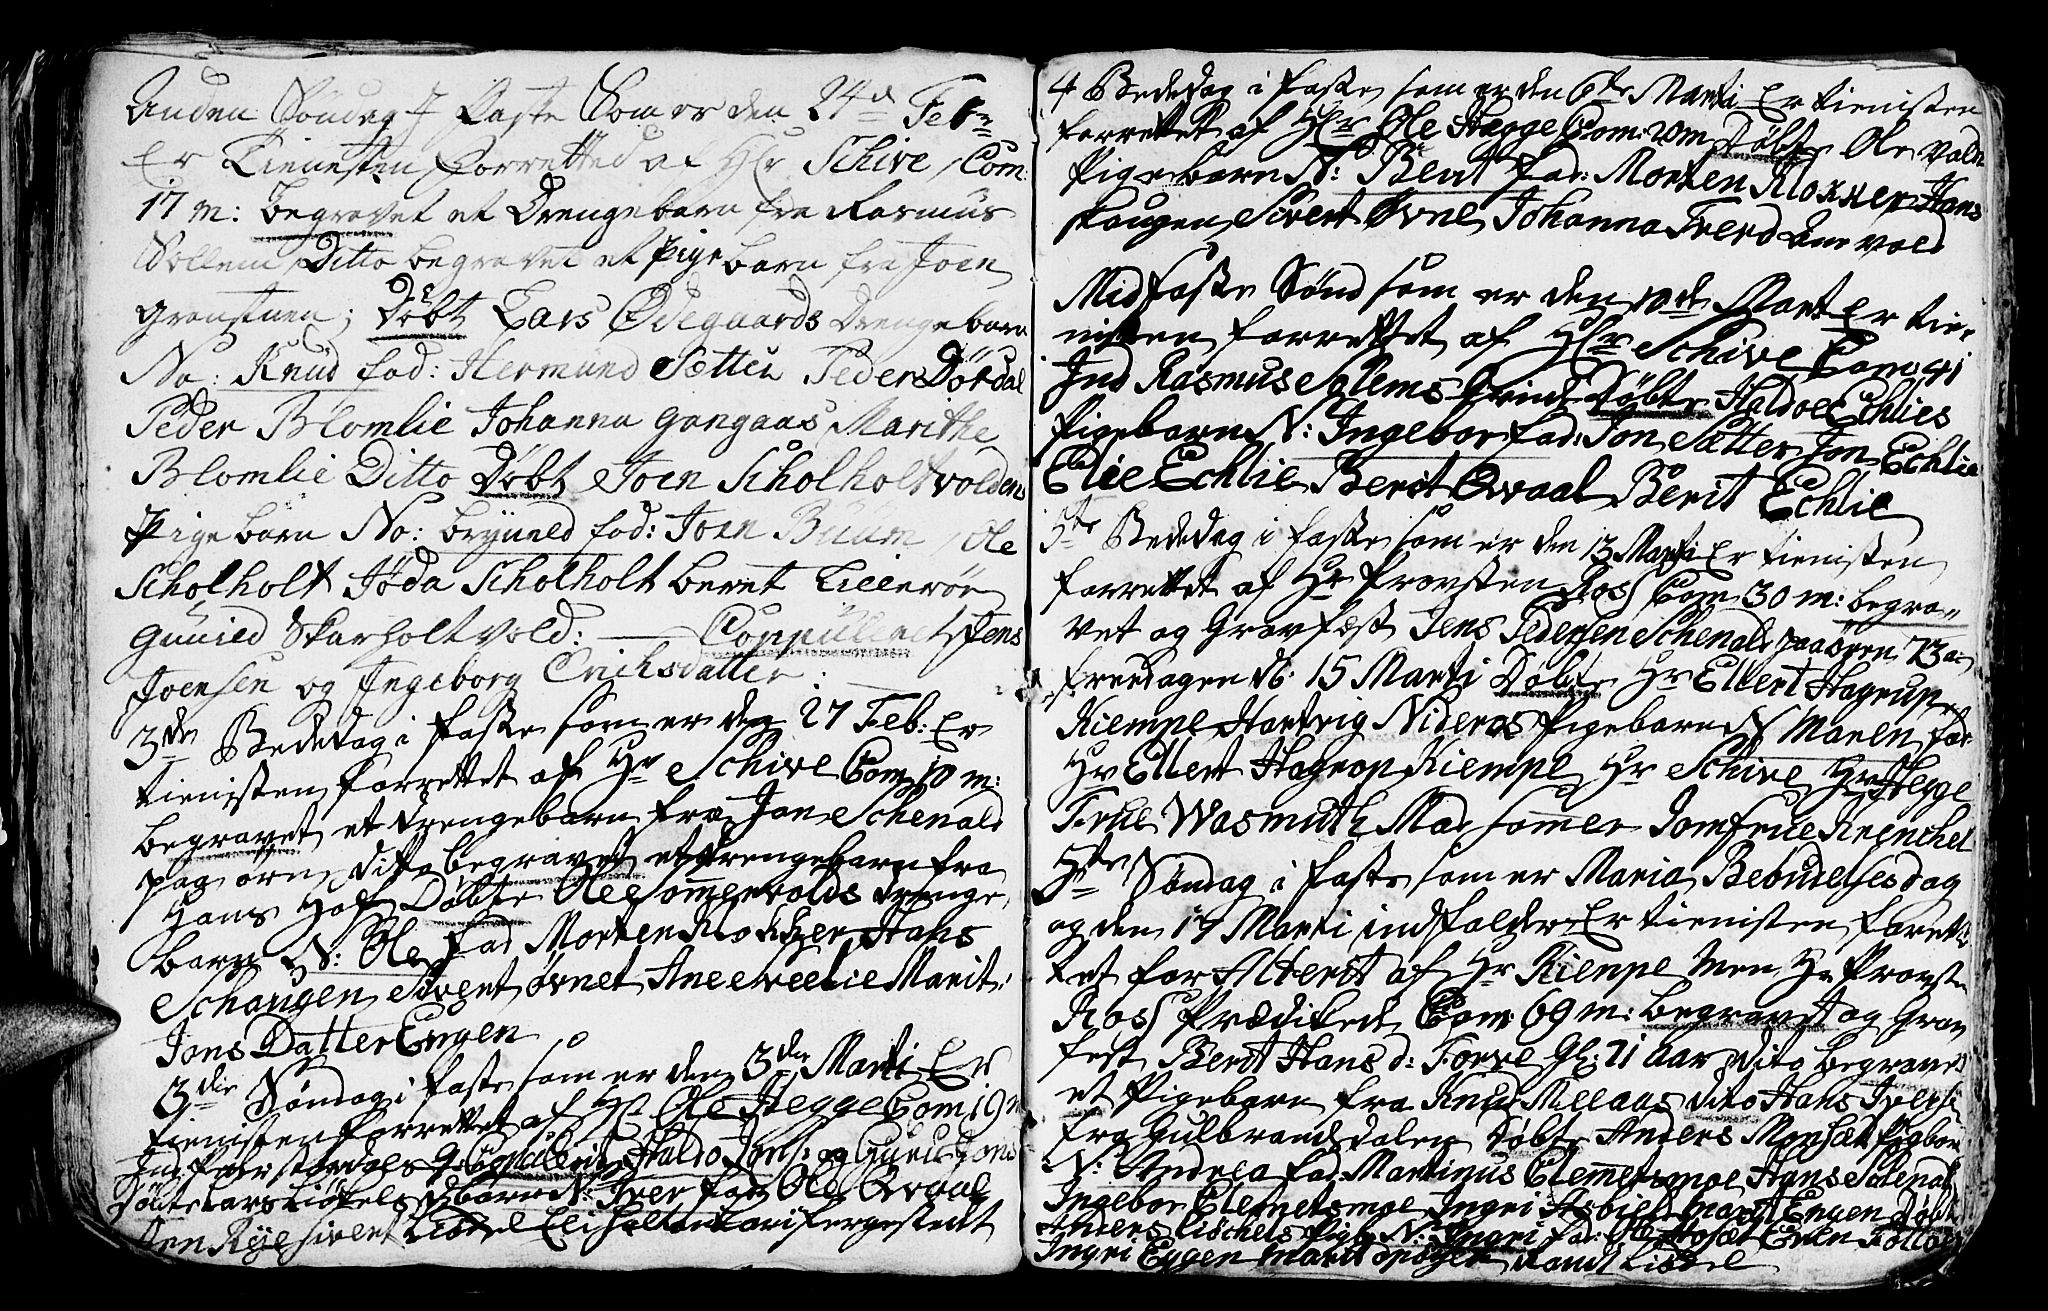 Anden Søndag J Faste Som er den 24de Febr
Er Tienesten Forretted af Hlr Schive Com:
17 m: begravet et Drengebarn fra Rasmus
Sollem, Ditto begravet et Pige barn fra Joen
Døbt Lars Ødegaards Drengebarn
No: Knud fad: Hermund Sætter Peder Dørdal
Peder Blomlie Johanna gangaas Marithe
Blomlie Ditto Døbt Joen Scholholtvoldens
Pige barn No: brynild fad: Joen Buum Ole
Scholholt Jøda Scholholt beret Lillerøn
Skarholtvold: Coppulleret Jens
Joensen og Ingeborg Erichsdatter:
3de Bededag i faste som er den 27 Feb: Er
tienisten forrettet af Hr Schive Com 10 m:
begravet et drengebarn fra Jon Schenald
ditto begravet et drengebarn fra
Hans Hof Døbte Ole Somervolds drenge
barn N: Ole fad Morten Klokker Hans
Schaugen Sivert øvnet Ane Marit
Jons Datter Engen
3die Søndag i faste som er den 3die Marti Er
tienisten forrettet af Hr Ole Hegge Com 19 m
Haldo Jons: og Guru Jons
Døbte Lars barn N: Iver fad Ole Qvaal
Sivert Eli
4 Bededag i faste som er den 6te Marti Er tienisten
forrettet af Hlr Ole Hegge Com: 20 m Døbte Ole vold
Pigebarn N: Berit fad: Morten Klokker Hans
skaugen Sivert Øvne Johanna Trerd Ane vold
Midfaste Sønd som er den 10de Mart Er tie-
nisten forrettet af Hlr Schive Com: 41
Ind Rasmus Solems Qvinde Døbte Haldoe Echlies
Pigebarn N: Ingebor fad: Jon Sætter Jon Echlie
Elie Echlie Berit Qvaal Berit Echlie
5te Bededag i faste som er den 13 Marti Er tienisten
forrettet af Hr Provsten Ross Com 30 m: begra-
vet og Gravfæst Jens Pedersen Schenald 73 a:
freedagen d: 15 Marti Døbte Hr Ellert Hagrup
Kiempe Hartvig Nideros Pigebarn N Maren fad:
Hr Ellert Hagrop Kiempe Hr Schive Hr Hegge
Frue Wasmuth Mad somer Jomfrue Krenchel
5te Søndag i faste som er Maria Bebudelses dag
og den 17 Marti indfalder Er tienisten foret-
tet for Alterit af Hr Kiempe Men Hr Provst
Ross Prædikede Com: 69 m: begravet og Grav
fest Berit Hans d: Forve Gl: 71 Aar dito begravet
et Pigebarn fra Knud Meeaas dito Hans Iversen
fra Gulbrandsdalen Døbte Anders Monsæt Pigebarn
N: Andrea fad: Martinus Clemetsmoe Hans Schenald
Ingebor Clemetsmoe Ingri Engen Døbt
Anders Pigb: N: Ingri fad: Ole Hofset Even
Ingri Eggen Marit Randi